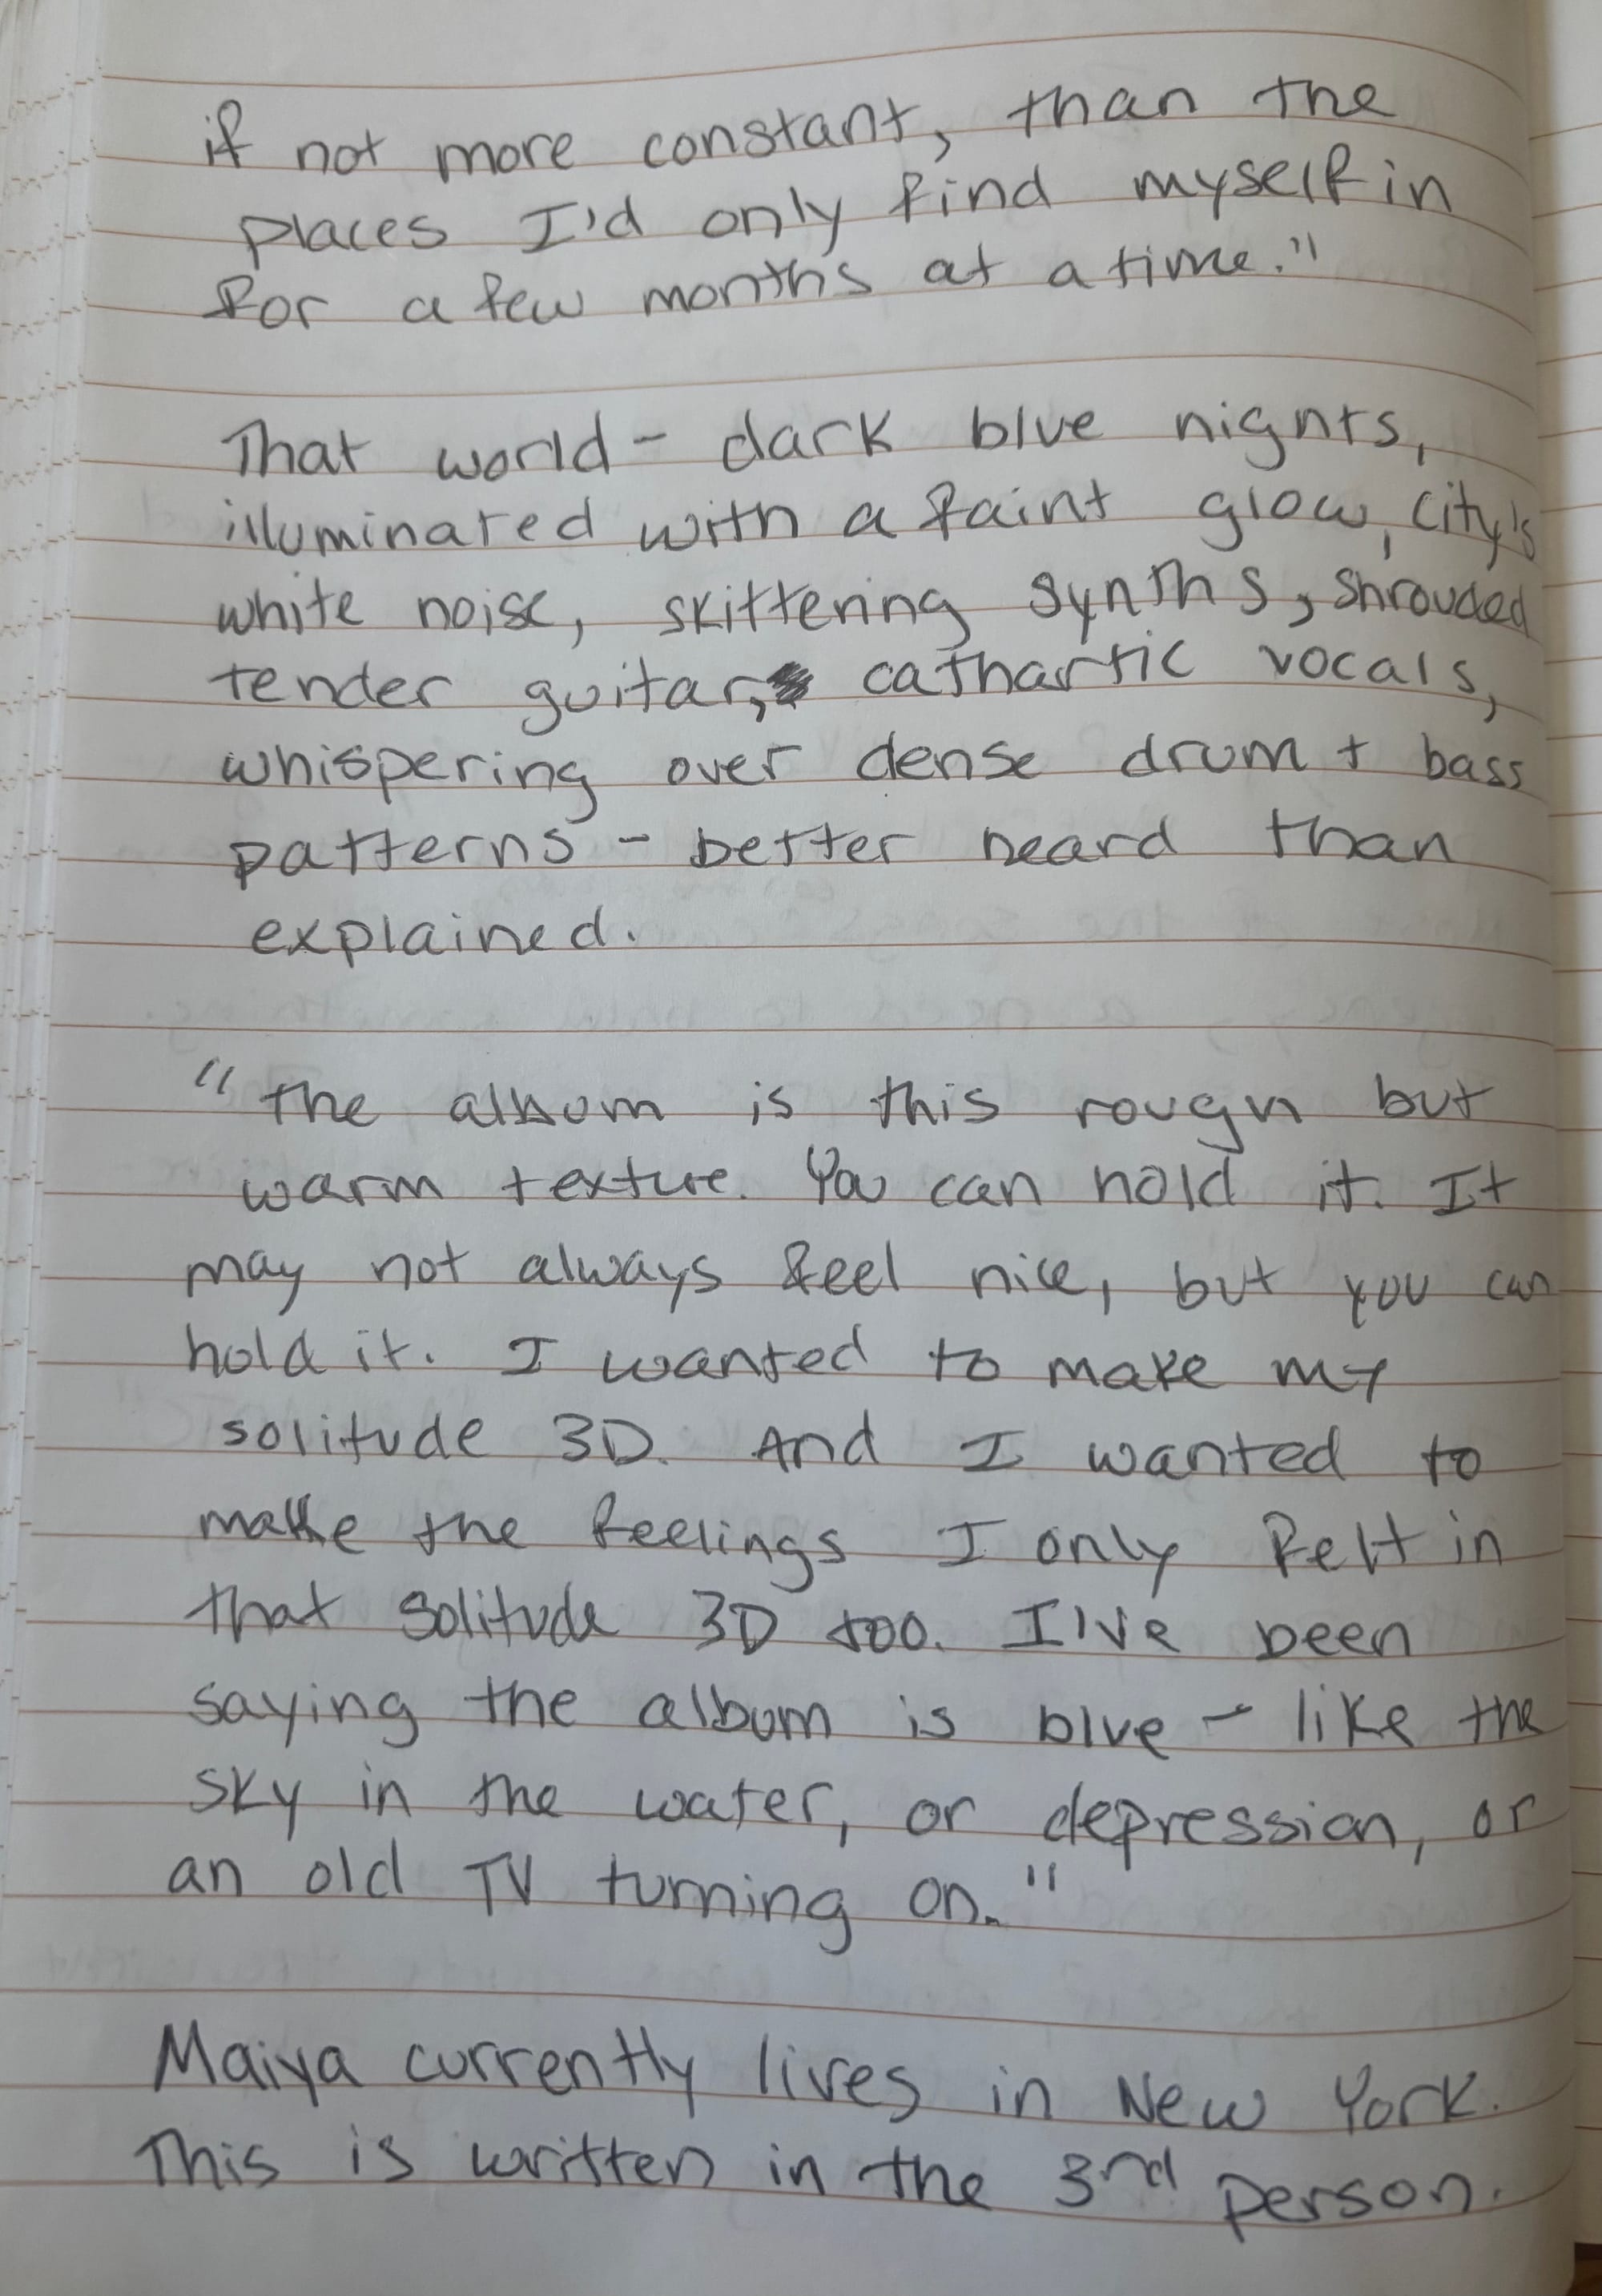 if not more constant, than the
places I'd only find myself in
for a few months at a time."
That world - dark blue nights,
illuminated with a faint glow, city's
white noise, skittering synths, shrouded
tender guitar, cathartic vocals,
whispering over dense drum + bass
patterns - better heard than
explained.
"the album is this rough but
warm texture. You can hold it. It
may not always feel nice, but you can
hold it. I wanted to make my
solitude 3D. And I wanted to
make the feelings I only felt in
that solitude 3D too. I've been
saying the album is blue - like the
sky in the water, or depression, or
an old TV turning on."
Maiya currently lives in New York.
This is written in the 3rd person.